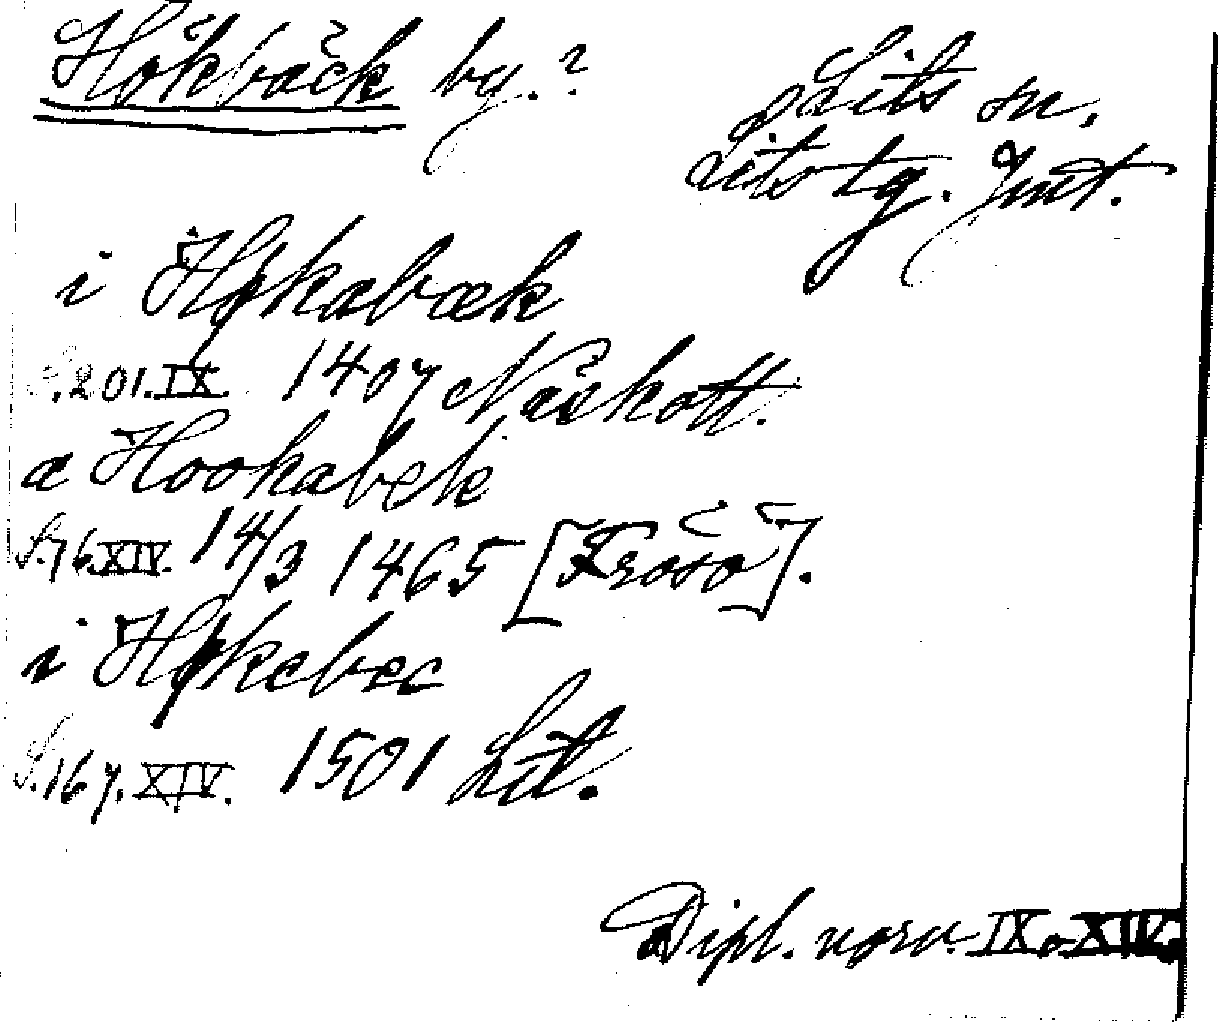 Hökbäck by.?
Lits sn.
Lits tg. Jmt.
i Høkabæk
S.201.IX 1407 Näskott.
a Hookabek
S.76.XIV. 14/3 1465 [Frösö].
i Høkebec
S.167.XIV. 1501 Lit.
Dipl. norv. IX o XIV.